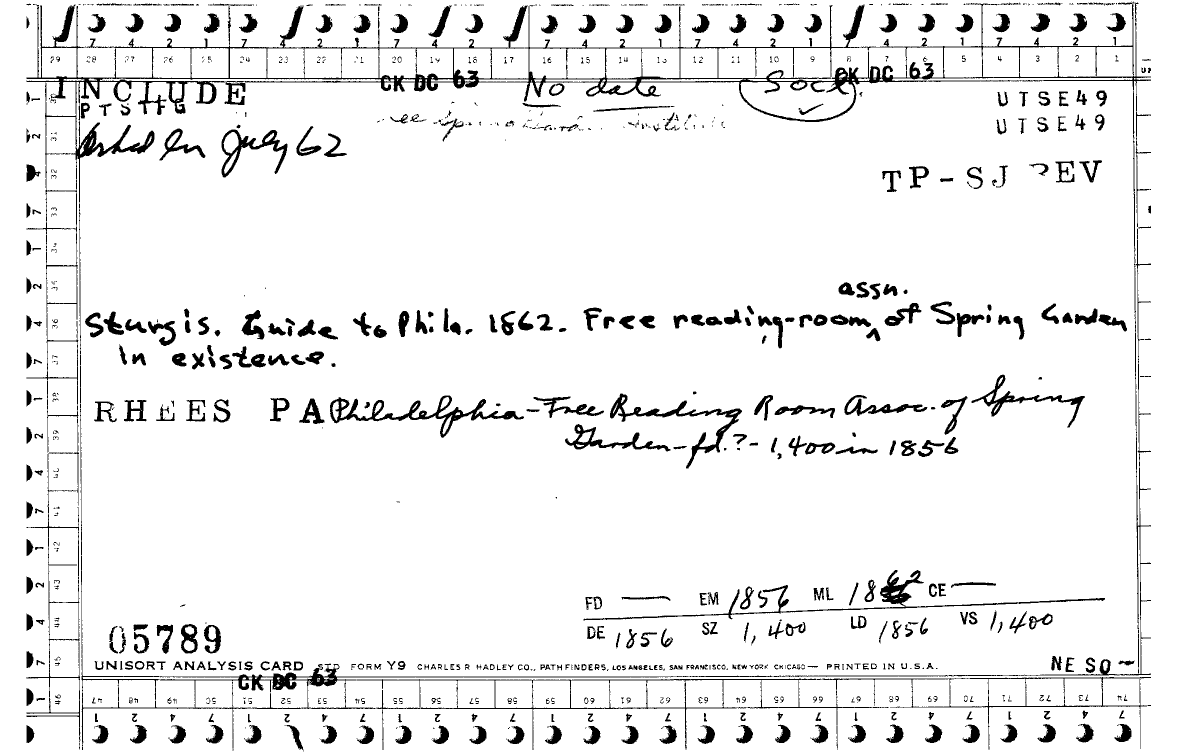 7 4 2 1 7 4 2 1 7 4 2 1 7 4 2 1 7 4 2 1 7 4 2 1 7 4 2 1
29 28 27 26 25 24 23 22 21 20 19 18 17 16 15 14 13 12 11 10 9 8 7 6 5 4 3 2 1
INCLUDE CK DC 63 No date Soct. CK DC 63
UTSE49
UTSE49
see Spring Garden Institute
in July 62
TP-SJ REV
assn.
Sturgis. Guide to Phila. 1862. Free reading-room ^ of Spring Garden
in existence.
RHEES PA Philadelphia - Free Reading Room Assoc. of Spring
Garden - fd.? - 1,400 in 1856
FD — EM 1856 ML 1862 CE —
DE 1856 SZ 1,400 LD 1856 VS 1,400
05789
UNISORT ANALYSIS CARD STD FORM Y9 CHARLES R HADLEY CO., PATHFINDERS, LOS ANGELES, SAN FRANCISCO, NEW YORK CHICAGO — PRINTED IN U.S.A.
NE SO -
CK DC 63
47 48 49 50 51 52 53 54 55 56 57 58 59 60 61 62 63 64 65 66 67 68 69 70 71 72 73 74
1 2 4 7 1 2 4 7 1 2 4 7 1 2 4 7 1 2 4 7 1 2 4 7 1 2 4 7